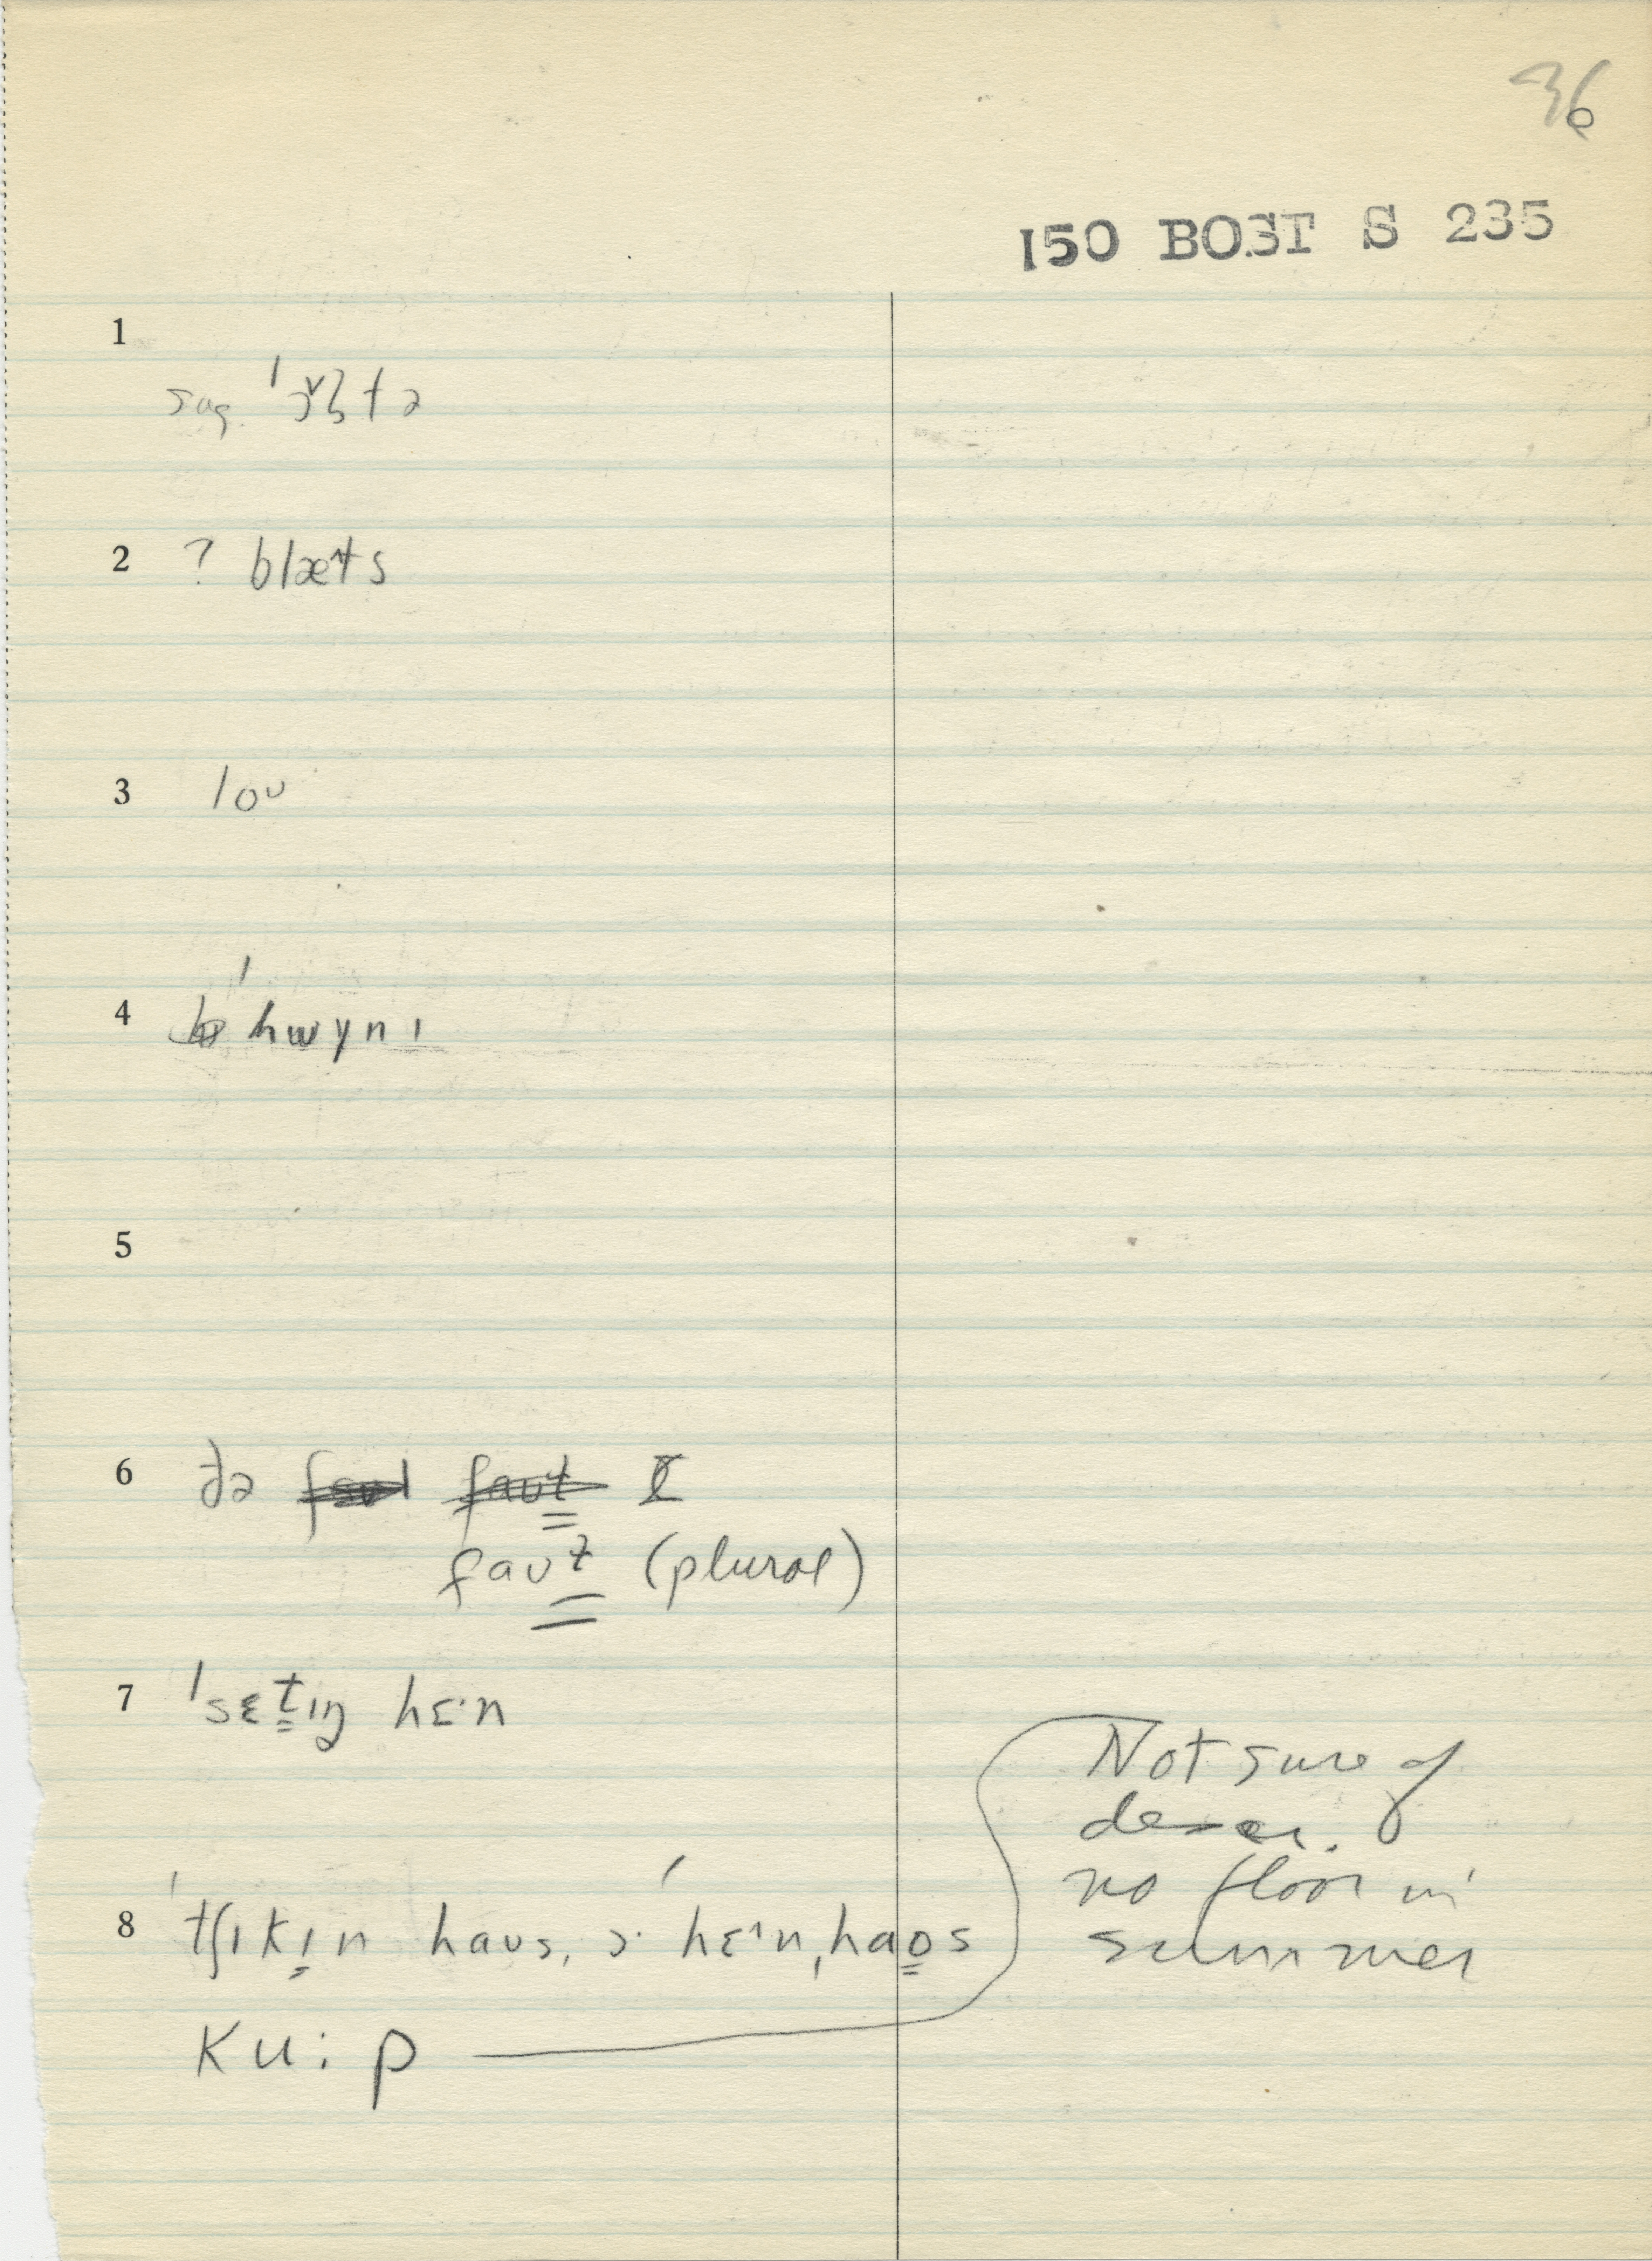 36
150 BOST S 235
1
sug.
2 ? blæ^ts
3 loʊ
4 ˈhwɣnɪ
5
6 ðə faʊl faʊɫ
faʊɫ (plural)
7 ˈsɛt̬ɪŋ hɛ·n
8 ˈtʃɪkɪ̨n haʊs, ɔ· ˈhɛ^n ˌhaʊs
Ku: p
Not sure of
no floor in
summer